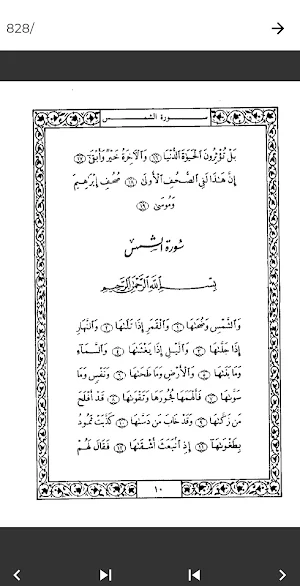 828/
سورة الشمس
بَلْ تُؤْثِرُونَ ٱلْحَيَوٰةَ ٱلدُّنْيَا ١٦ وَٱلْآخِرَةُ خَيْرٌ وَأَبْقَىٰٓ ١٧
إِنَّ هَٰذَا لَفِى ٱلصُّحُفِ ٱلْأُولَىٰ ١٨ صُحُفِ إِبْرَٰهِيمَ
وَمُوسَىٰ ١٩
سُورَةُ الشَّمْسِ
بِسْمِ ٱللَّهِ ٱلرَّحْمَٰنِ ٱلرَّحِيمِ
وَٱلشَّمْسِ وَضُحَىٰهَا ١ وَٱلْقَمَرِ إِذَا تَلَىٰهَا ٢ وَٱلنَّهَارِ
إِذَا جَلَّىٰهَا ٣ وَٱلَّيْلِ إِذَا يَغْشَىٰهَا ٤ وَٱلسَّمَآءِ
وَمَا بَنَىٰهَا ٥ وَٱلْأَرْضِ وَمَا طَحَىٰهَا ٦ وَنَفْسٍ وَمَا
سَوَّىٰهَا ٧ فَأَلْهَمَهَا فُجُورَهَا وَتَقْوَىٰهَا ٨ قَدْ أَفْلَحَ
مَن زَكَّىٰهَا ٩ وَقَدْ خَابَ مَن دَسَّىٰهَا ١٠ كَذَّبَتْ ثَمُودُ
بِطَغْوَىٰهَآ ١١ إِذِ ٱنۢبَعَثَ أَشْقَىٰهَا ١٢ فَقَالَ لَهُمْ
١٠